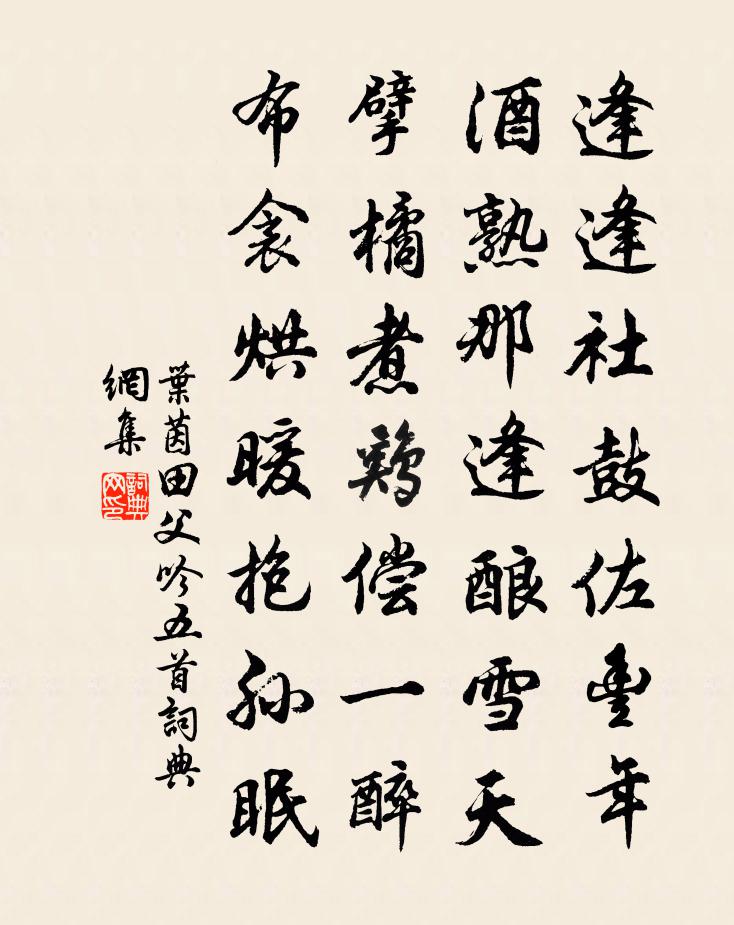 逢逢社鼓佐豊年
酒熟那逢酿雪天
擘橘煮鷄偿一醉
布衾烘暖抱孙眠
葉茵田父吟五首詞典
網集
詞典网印